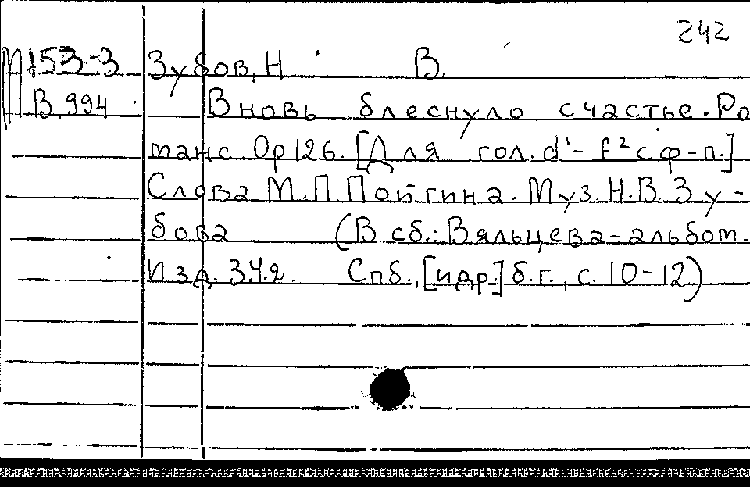 242
М 153-3 Зубов, Н. В.
В.994 Вновь блеснуло счастье. Ро
манс. Ор 126. [Для гол. d¹- f² с ф-п.]
Слова М.П. Пойгина. Муз. Н.В. Зу-
бова (В сб.: Вяльцева-альбом.
Изд. 3.4.2. Спб., [идр.] б.г., с. 10-12)